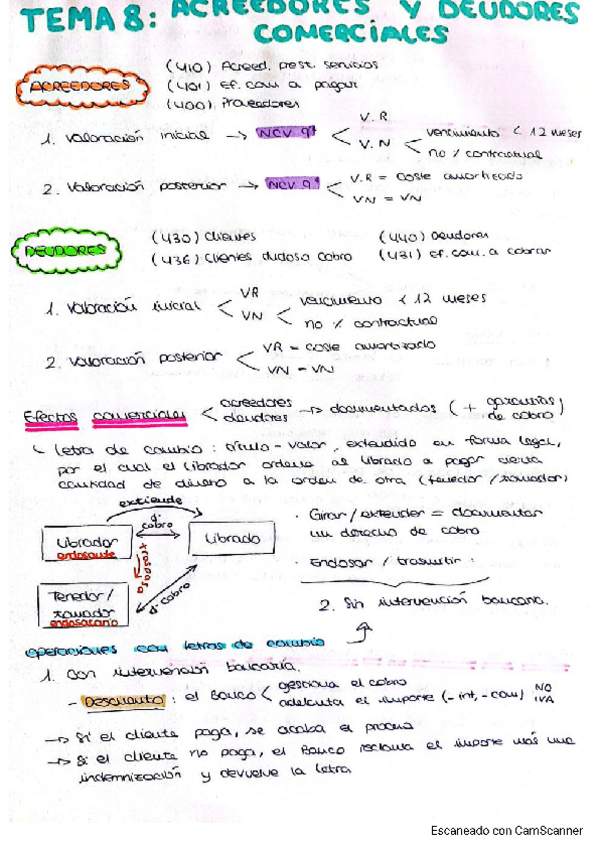 TEMA 8: ACREEDORES Y DEUDORES
COMERCIALES
ACREEDORES
(410) Acreed. prest. servicios
(401) Ef. com. a pagar
(400) Proveedores
1. Valoración inicial → NCV 9ª < V.R
V.N < vencimiento < 12 meses
no % contractual
2. Valoración posterior → NCV 9ª < V.R = coste amortizado
VN = VN
DEUDORES
(430) Clientes (440) Deudores
(436) Clientes dudoso cobro (431) Ef. com. a cobrar
1. Valoración inicial < VR
VN < vencimiento < 12 meses
no % contractual
2. Valoración posterior < VR = coste amortizado
VN = VN
Efectos comerciales < acreedores
deudores → documentados (+ garantías de cobro)
↳ letra de cambio: título-valor, extendido en forma legal,
por el cual el librador ordena al librado a pagar cierta
cantidad de dinero a la orden de otra (tenedor / tomador)
extiende
dº cobro
Librador
endosante
Librado
traspasa
dº cobro
Tenedor /
tomador
endosatario
· Girar / extender = documentar
un derecho de cobro
· Endosar / trasmitir:
2. Sin intervención bancaria.
operaciones con letras de cambio
1. Con intervención bancaria.
- Descuento: el Banco < gestiona el cobro
adelanta el importe (-int, -com) NO IVA
→ Si el cliente paga, se acaba el proceso
→ Si el cliente no paga, el Banco reclama el importe más una
indemnización y devuelve la letra
Escaneado con CamScanner